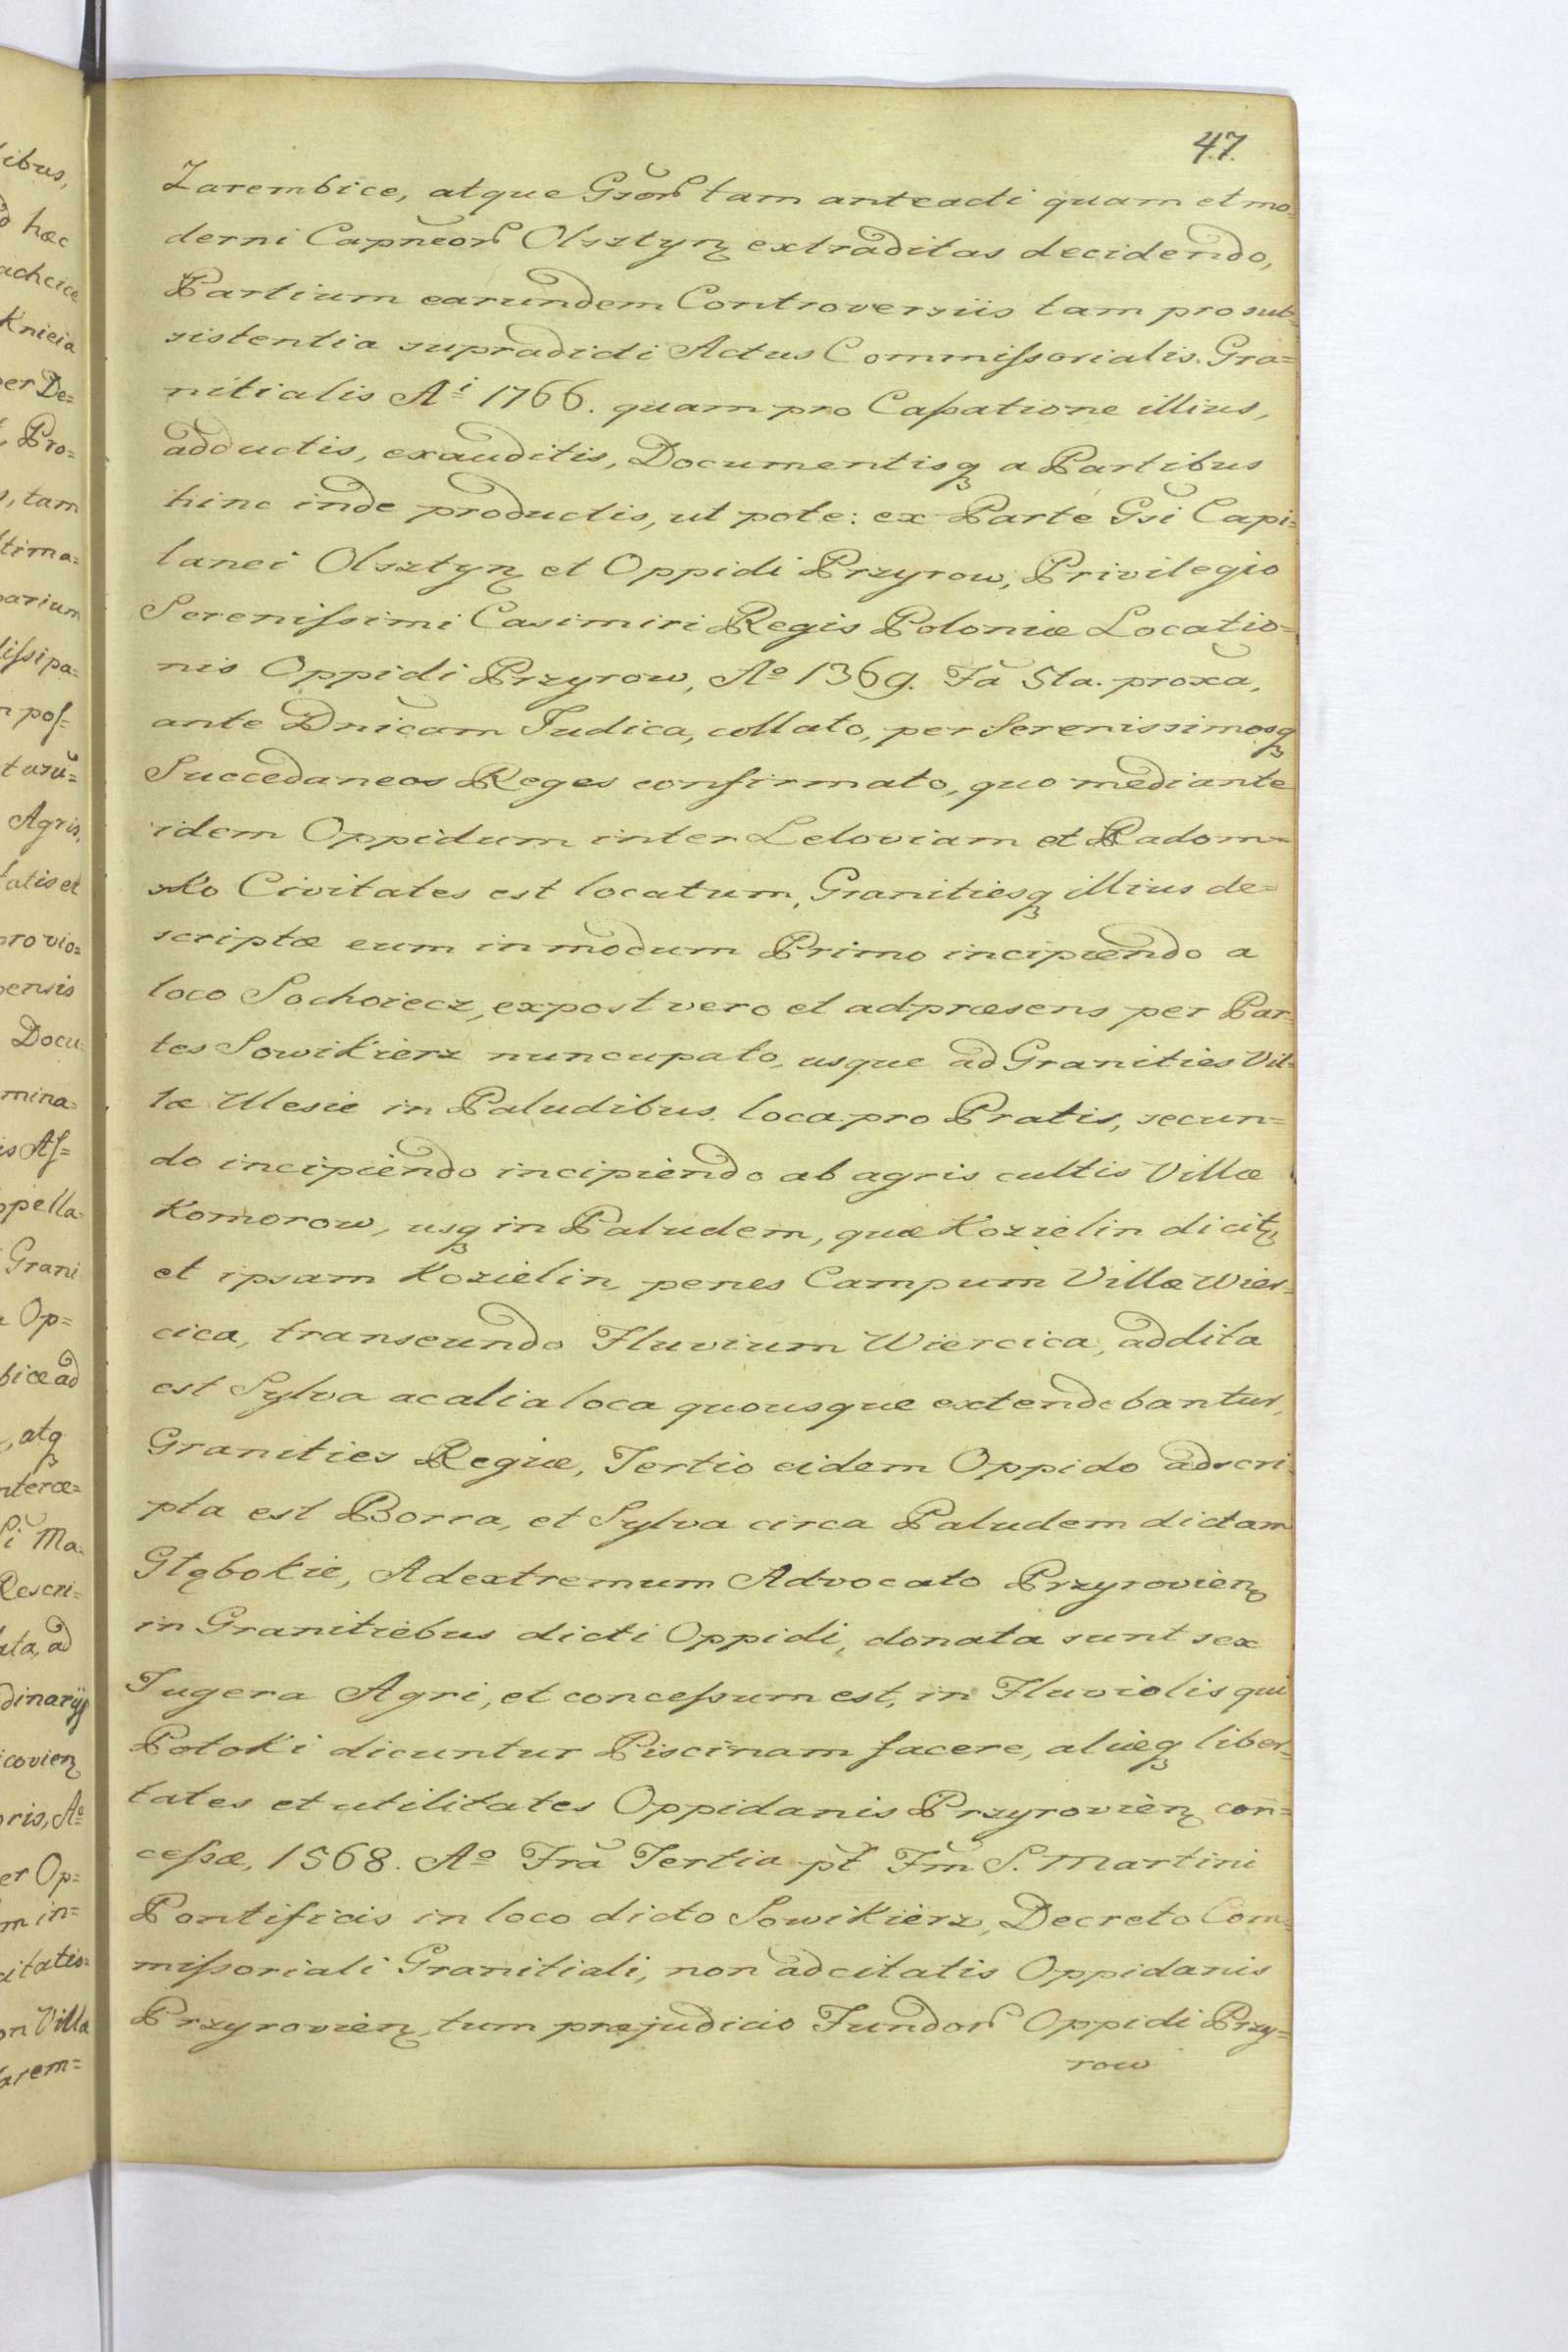 47.
Zarembice, atque Gsor̃ tam anteacti quam et mo=
derni Capneor̃ Olsztyn̨ extraditas decidendo,
Partium earundem Controversiis tam pro sub=
sistentia supradicti Actus Commiſsorialis Gra=
nitialis Aⁱ 1766. quam pro Caſsatione illius,
adductis, exauditis, Documentisqꝫ a Partibus
hinc inde productis, ut pote: ex Parte Gsĩ Capi=
tanei Olsztyn̨ et Oppidi Przyrow, Privilegio
Sereniſsimi Casimiri Regis Poloniæ Locatio=
nis Oppidi Przyrow, Aº 1369. Fã 5ta. proxã,
ante Dnicam Judica, collato, per Serenissimosqꝫ
Succedaneos Reges confirmato, quo mediante
idem Oppidum inter Leloviam et Radom=
sko Civitates est locatum, Granitiesqꝫ illius de=
scriptæ eum in modum Primo incipiendo a
loco Sochoiecz, expost vero et ad præsens per Par=
tes Sowikierz nuncupato, usque ad Granities Vil=
læ Ulesie in Paludibus loca pro Pratis, secun=
do incipiendo incipiendo ab agris cultis Villæ
Komorow, usqꝫ in Paludem, quæ Kozielin dicitꝫ
et ipsam Kozielin, penes Campum Villæ Wier=
cica, transeundo Fluvium Wiercica, addita
est Sylva ac alia loca quousque extendebantur,
Granities Regiæ, Tertio eidem Oppido adscri=
pta est Borra, et Sylva circa Paludem dictam
Głębokie, Ad extremum Advocato Przyrovien̨
in Granitiebus dicti Oppidi, donata sunt sex
Jugera Agri, et conceſsum est, in Fluviolis qui
Potoki dicuntur Piscinam facere, aliæqꝫ liber=
tates et utilitates Oppidanis Przyrovien̨ con=
ceſsæ, 1568. Aº Frã Tertia pt̃ Fm̃ S. Martini
Pontificis in loco dicto Sowikierz, Decreto Com=
miſsoriali Granitiali, non adcitatis Oppidanis
Przyrovien̨ tum præjudicio Fundor̃ Oppidi Przy=
row
ibus,
hæc
achcice
Knieia
er De=
Pro=
, tam
tima=
arium
iſsipa=
poſ=
Agris,
tatis et
ro vio=
ensis
Docu=
mina=
is Aſ=
ppella=
Grani
Op=
bice ad
, atqꝫ
nteræ=
Ma=
Rescri=
ata, ad
dinarijs
covien̨
ris, Aº
er Op=
m in=
citatio=
on Villa
arem=